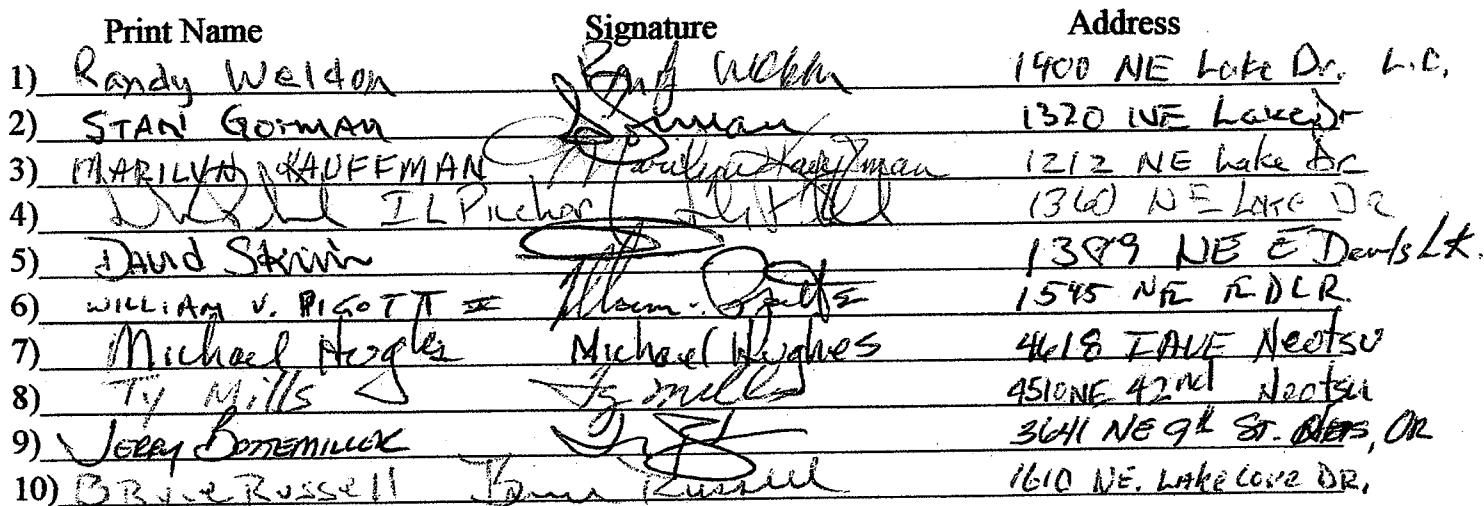 Print Name Signature Address
1) Randy Weldon Randy Weldon 1400 NE Lake Dr. L.C.
2) STAN GORMAN 1320 NE Lake Dr
3) MARILYN KAUFFMAN Marilyn Kauffman 1212 NE Lake Dr
4) 1360 NE LAKE DR
5) DAVID 1389 NE E Devils LK.
6) WILLIAM V. PIGOTT 1545 NE E DLR.
7) Michael Hughes Michael Hughes 4618 Neotsu
8) Ty Mills Ty Mills 4510 NE 42nd Neotsu
9) JERRY BOTTEMILLER 3641 NE 9th ST. OR
10) Bruce Russell Bruce Russell 1610 NE. Lake Cove DR,